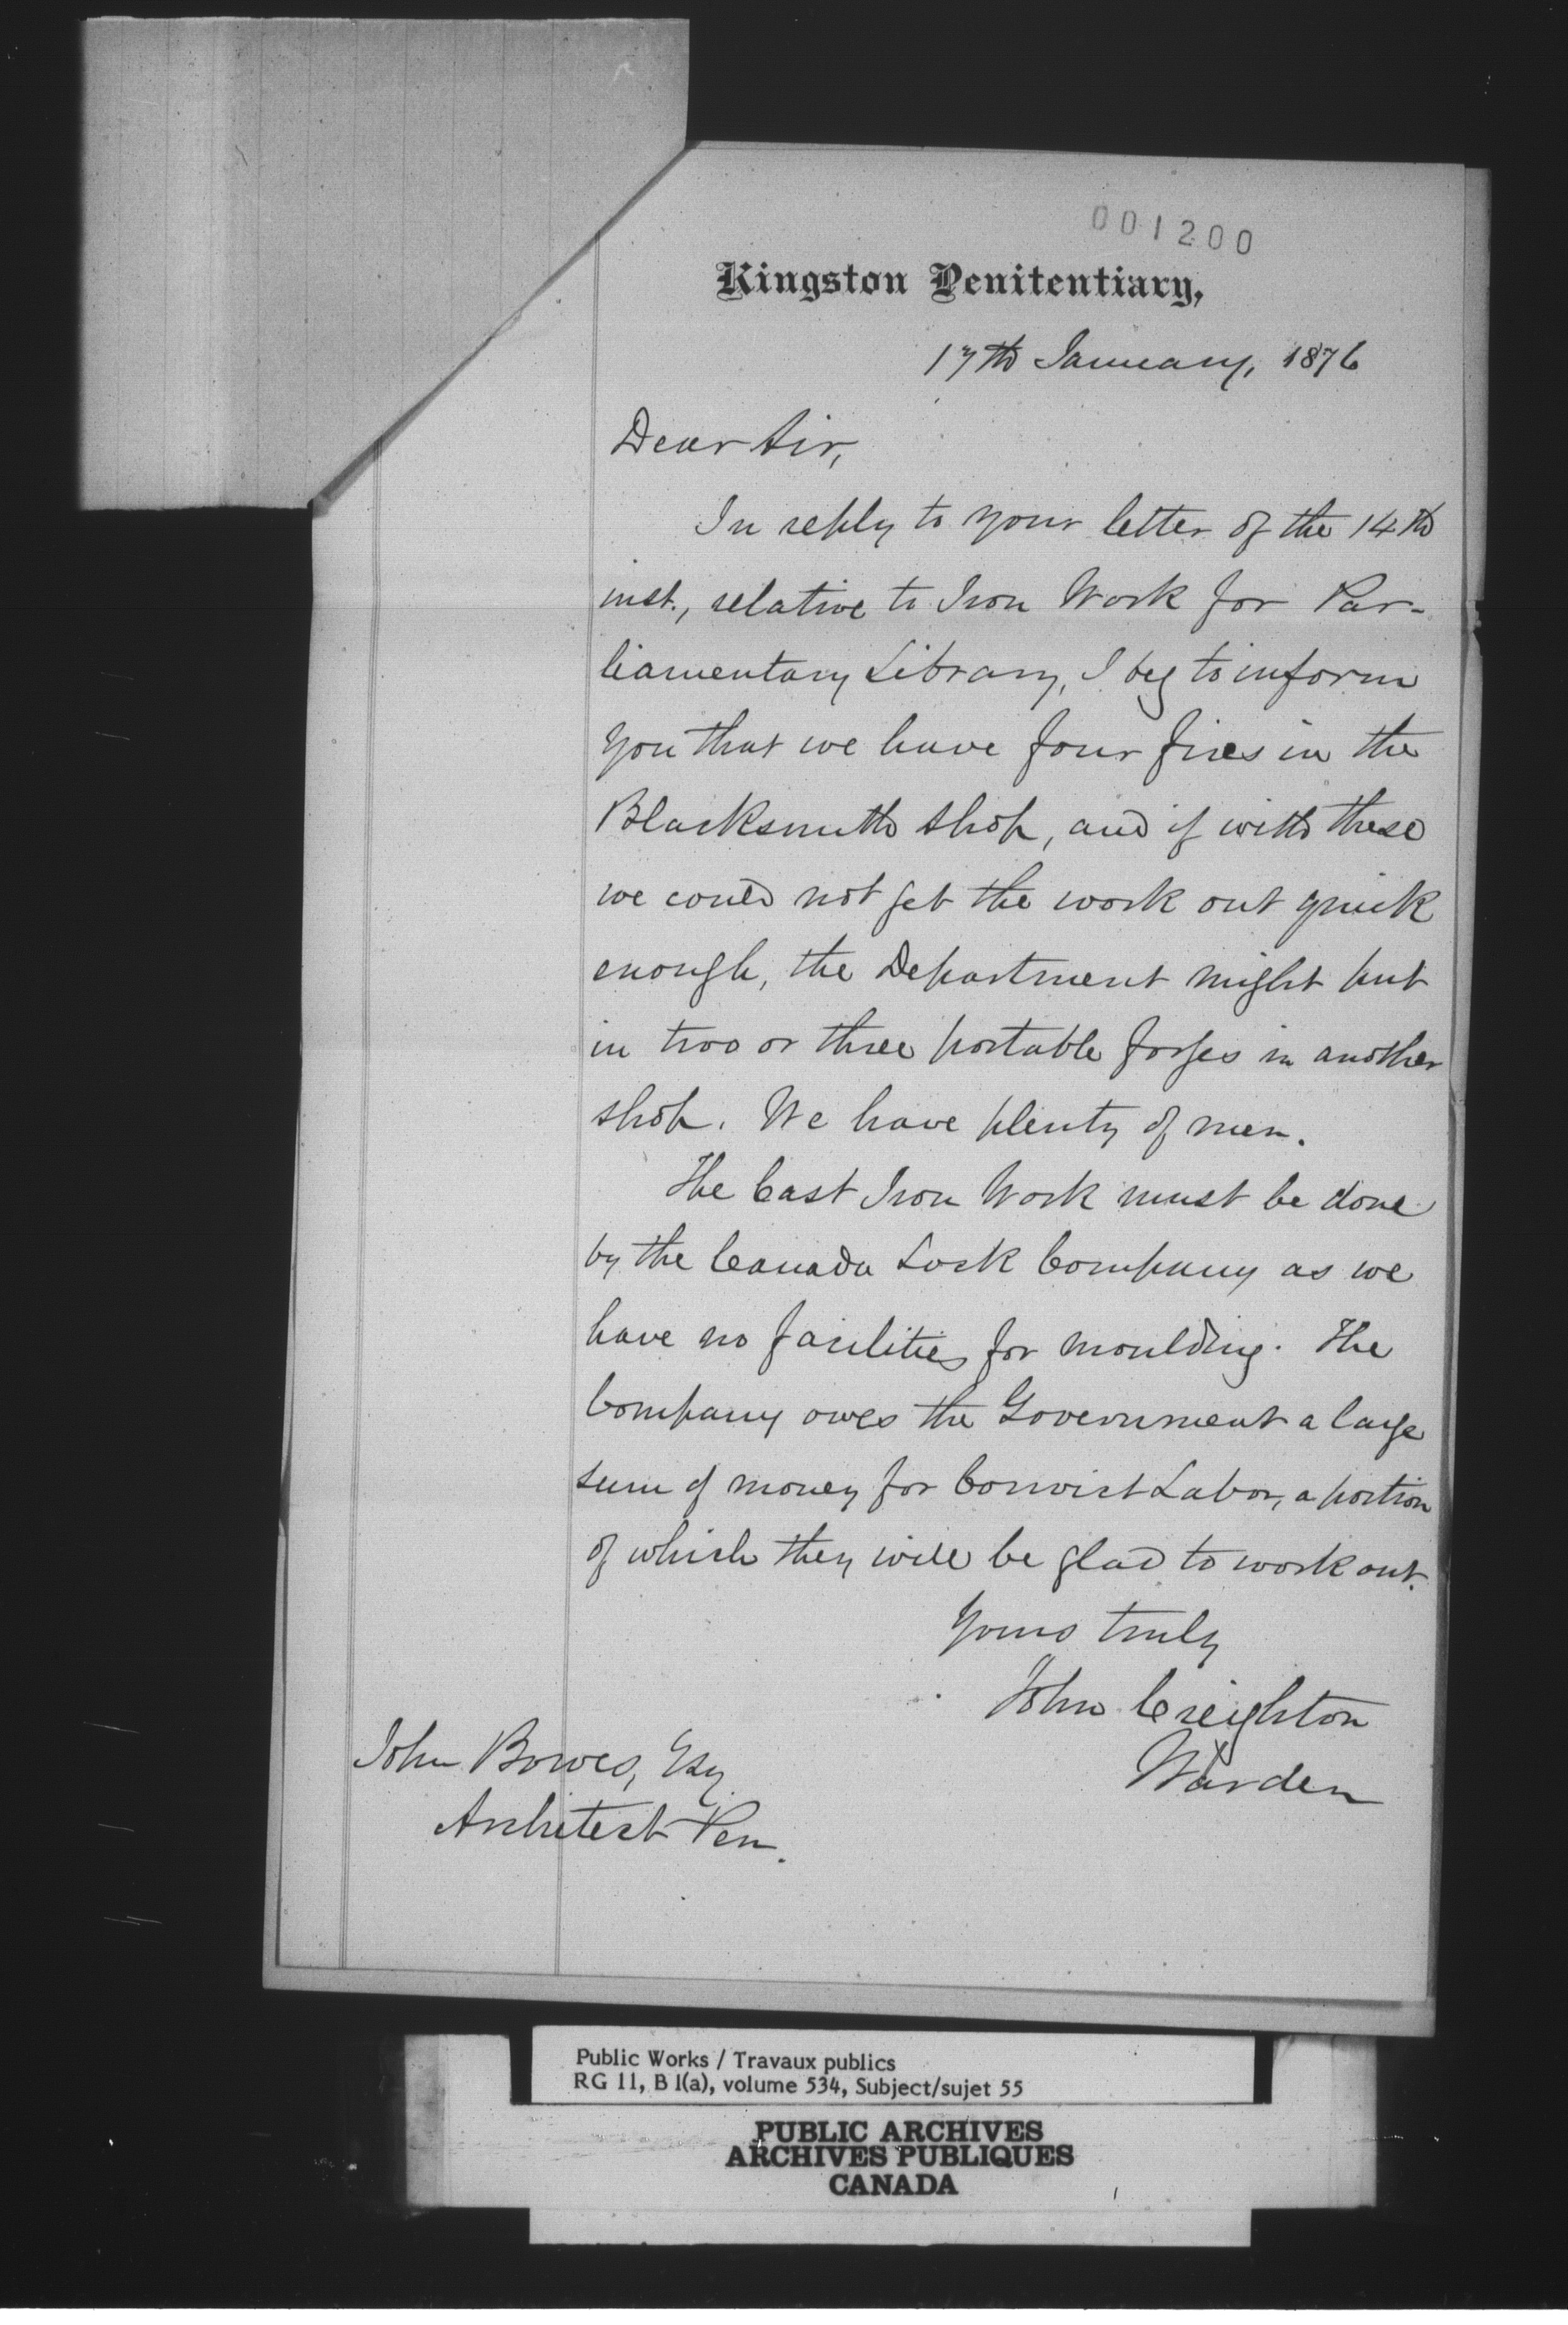 001200
Kingston Penitentiary,
17th January, 1876
Dear Sir,
In reply to your letter of the 14th
inst., relative to Iron Work for Par-
liamentary Library, I beg to inform
you that we have four fires in the
Blacksmith Shop, and if with these
we could not get the work out quick
enough, the Department might put
in two or three portable forges in another
shop. We have plenty of men.
The Cast Iron Work must be done
by the Canada Lock Company as we
have no facilities for moulding. The
Company owes the Government a large
sum of money for Convict Labor, a portion
of which they will be glad to work out.
Yours truly
John Creighton
Warden
John Bowes, Esq
Architect Pen.
Public Works / Travaux publics
RG 11, B 1(a), volume 534, Subject/sujet 55
PUBLIC ARCHIVES
ARCHIVES PUBLIQUES
CANADA